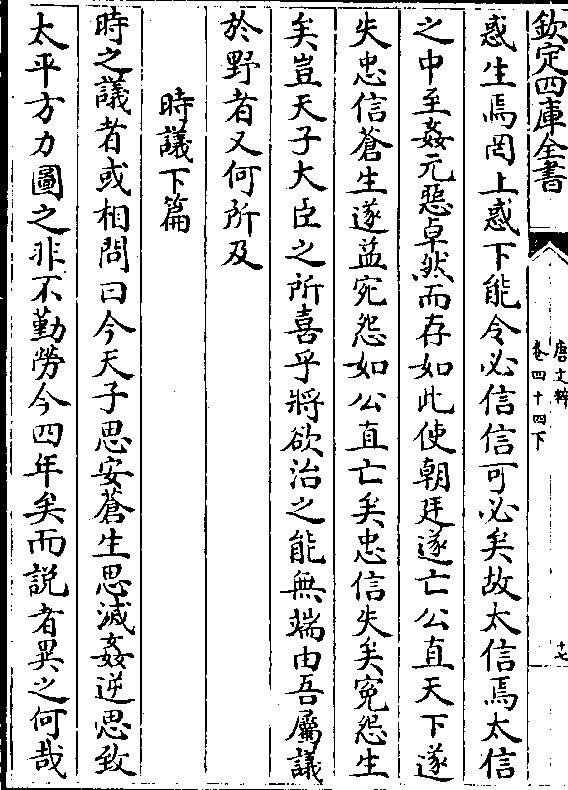 欽定四庫全書
唐文粹
卷四十四下
十七
惑生焉罔上惑下能令必信信可必矣故太信焉太信
之中至姦元惡卓然而存如此使朝廷遂亡公直天下遂
失忠信蒼生遂益宛怨如公直亡矣忠信失矣寃怨生
矣豈天子大臣之所喜乎將欲治之能無端由吾屬議
於野者又何所及
時議下篇
時之議者或相問曰今天子思安蒼生思滅姦逆思致
太平方力圖之非不勤勞今四年矣而説者異之何哉